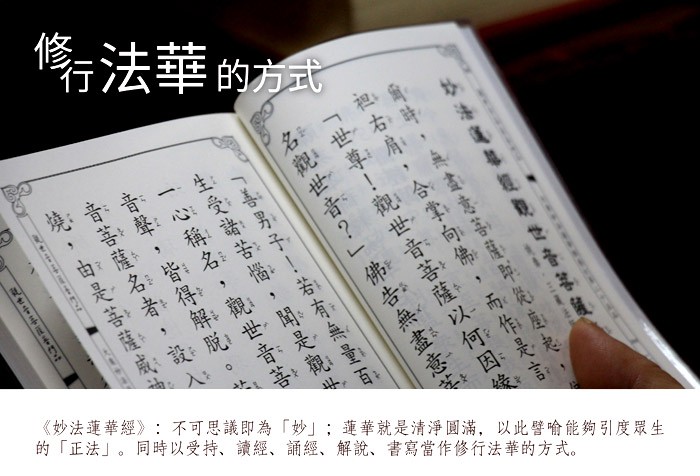 修行法華的方式
妙法蓮華經觀世音菩薩
爾時，無盡意菩薩即從座起，
袒右肩，合掌向佛，而作是言
「世尊！觀世音菩薩以何因緣
名觀世音？」佛告無盡意菩
「善男子！若有無量百
生受諸苦惱，聞是觀世
一心稱名，觀世音菩
音聲，皆得解脫。
音菩薩名者，設入
燒，由是菩薩威神
《妙法蓮華經》：不可思議即為「妙」；蓮華就是清淨圓滿，以此譬喻能夠引度眾生
的「正法」。同時以受持、讀經、誦經、解說、書寫當作修行法華的方式。